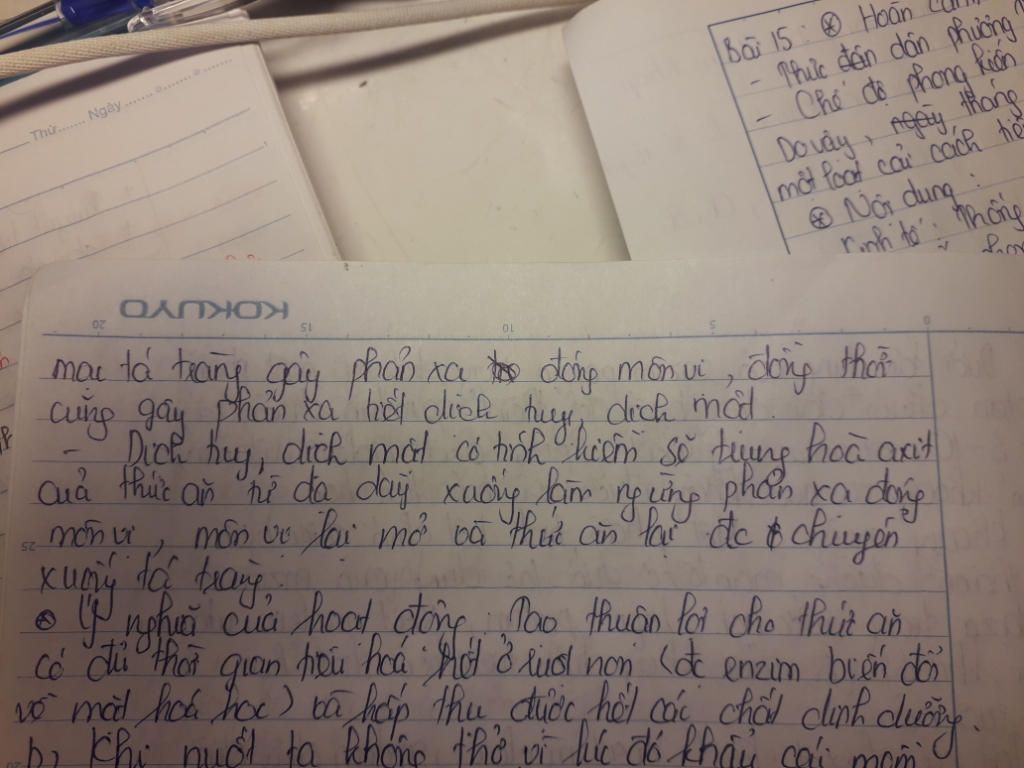 Thứ........ Ngày ........
Bài 15 : ⊛ Hoàn cảnh
- Thực dân phương
- Chế độ phong kiến
Do vậy, tháng
một loạt cải cách
⊛ Nội dung :
kinh tế : Thống
KOKUYO
20 15 10 5 0
mạc tá tràng gây phản xạ đóng môn vị, đồng thời
cũng gây phản xạ tiết dịch tụy, dịch mật.
- Dịch tụy, dịch mật có tính kiềm sẽ trung hoà axit
của thức ăn từ dạ dày xuống làm ngừng phản xạ đóng
môn vị, môn vị lại mở và thức ăn lại đc chuyển
25
xuống tá tràng.
⊛ Ý nghĩa của hoạt động: Tạo thuận lợi cho thức ăn
có đủ thời gian tiêu hoá hết ở ruột non (đc enzim biến đổi
về mặt hoá học) và hấp thu được hết các chất dinh dưỡng.
b) Khi nuốt ta không thở vì lúc đó khẩu cái mềm